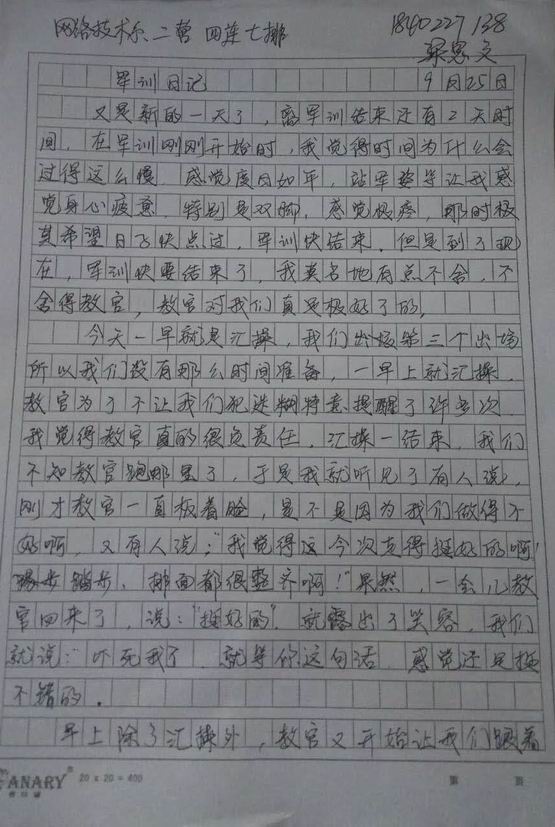 网络技术系 二营 四连七排
1840227138
梁思文
军训日记 9月25日
又是新的一天了，离军训结束还有2天时
间，在军训刚刚开始时，我觉得时间为什么会
过得这么慢，感觉度日如年，站军姿等让我感
觉身心疲惫，特别是双脚，感觉极疼，那时极
其希望日子快点过，军训快结束，但是到了现
在，军训快要结束了，我莫名地有点不舍，不
舍得教官，教官对我们真是极好了的，
今天一早就是汇操，我们出场第三个出场
所以我们没有那么时间准备，一早上就汇操，
教官为了不让我们犯迷糊特意提醒了许多次
我觉得教官真的很负责任，汇操一结束，我们
不知教官跑哪里了，于是我就听见了有人说，
刚才教官一直板着脸，是不是因为我们做得不
好啊，又有人说："我觉得这今次走得挺好的啊！
踏步，排面都很整齐啊！"果然，一会儿教
官回来了，说："挺好的"，就露出了笑容，我们
就说："吓死我了，就等你这句话，感觉还是挺
不错的。
早上除了汇操外，教官又开始让我们跟着
ANARY
20 x 20 = 400
第 页